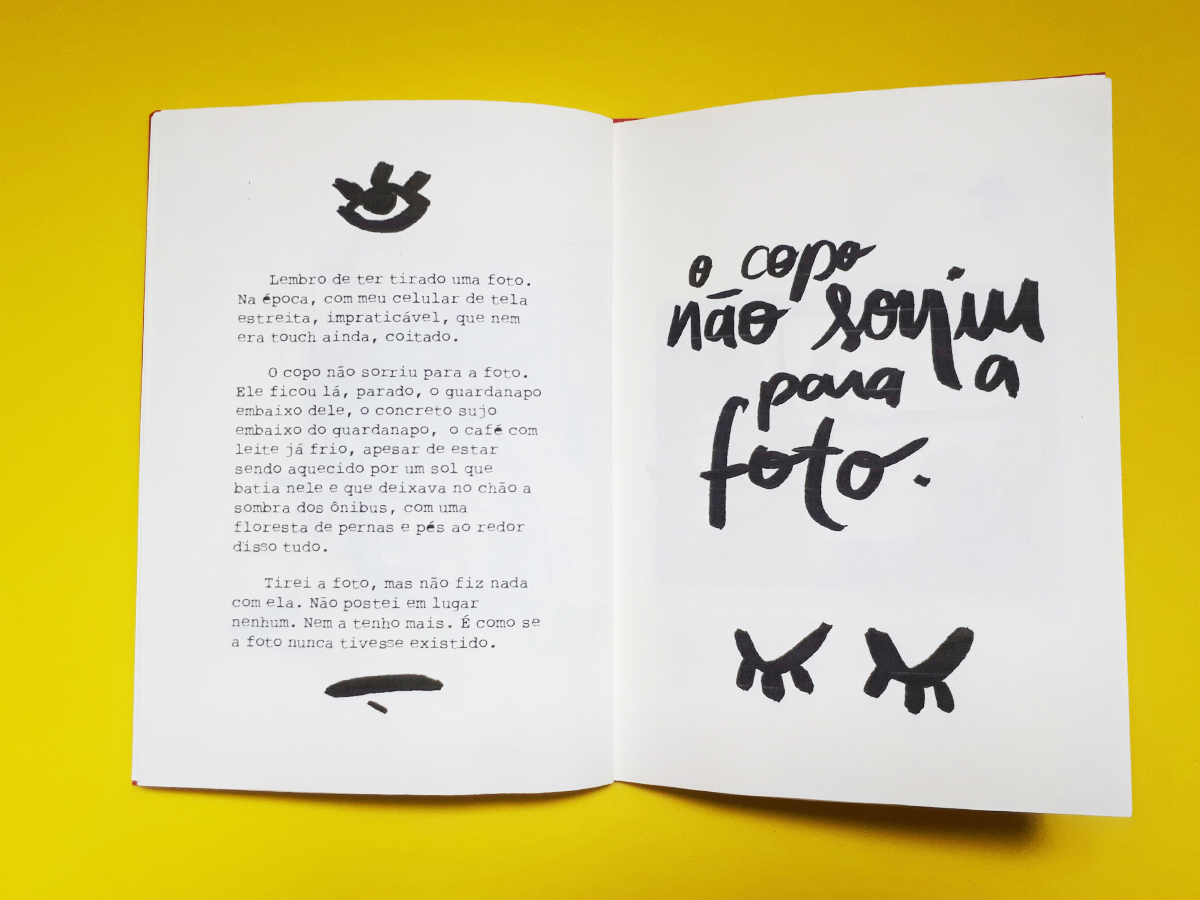 Lembro de ter tirado uma foto.
Na época, com meu celular de tela
estreita, impraticável, que nem
era touch ainda, coitado.
O copo não sorriu para a foto.
Ele ficou lá, parado, o guardanapo
embaixo dele, o concreto sujo
embaixo do guardanapo, o café com
leite já frio, apesar de estar
sendo aquecido por um sol que
batia nele e que deixava no chão a
sombra dos ônibus, com uma
floresta de pernas e pés ao redor
disso tudo.
Tirei a foto, mas não fiz nada
com ela. Não postei em lugar
nenhum. Nem a tenho mais. É como se
a foto nunca tivesse existido.
o copo
não sorriu
para a
foto.